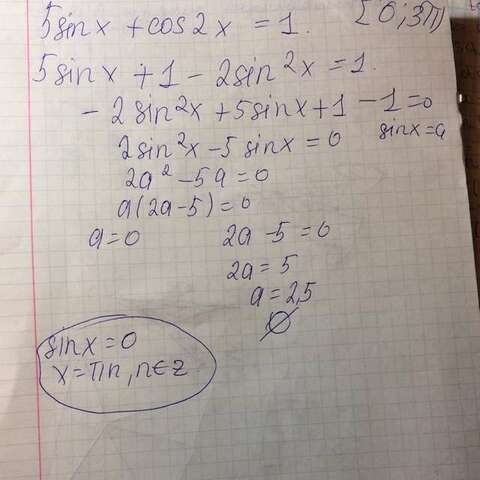 5sinx + cos2x = 1. [0;3π)
5sinx + 1 - 2sin²x = 1.
- 2sin²x + 5sinx + 1 - 1 = 0
2sin²x - 5sinx = 0 sinx = a
2a² - 5a = 0
a(2a - 5) = 0
a = 0 2a - 5 = 0
2a = 5
a = 2,5
∅
sinx = 0
x = πn, n ∈ z